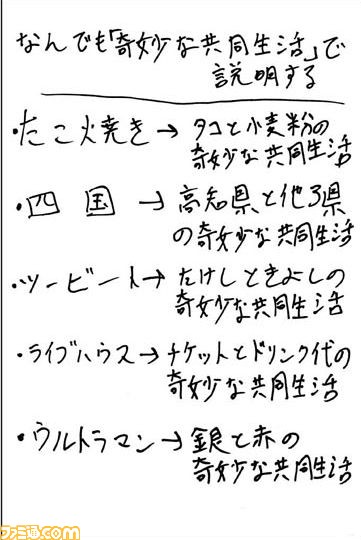 なんでも「奇妙な共同生活」で
説明する
・たこ火焼き→タコと小麦粉の
奇妙な共同生活
・四国→高知県と他3県
の奇妙な共同生活
・ツービート→たけしときよしの
奇妙な共同生活
・ライブハウス→チケットとドリンク代の
奇妙な共同生活
・ウルトラマン→銀と赤の
奇妙な共同生活
ファミ通.com